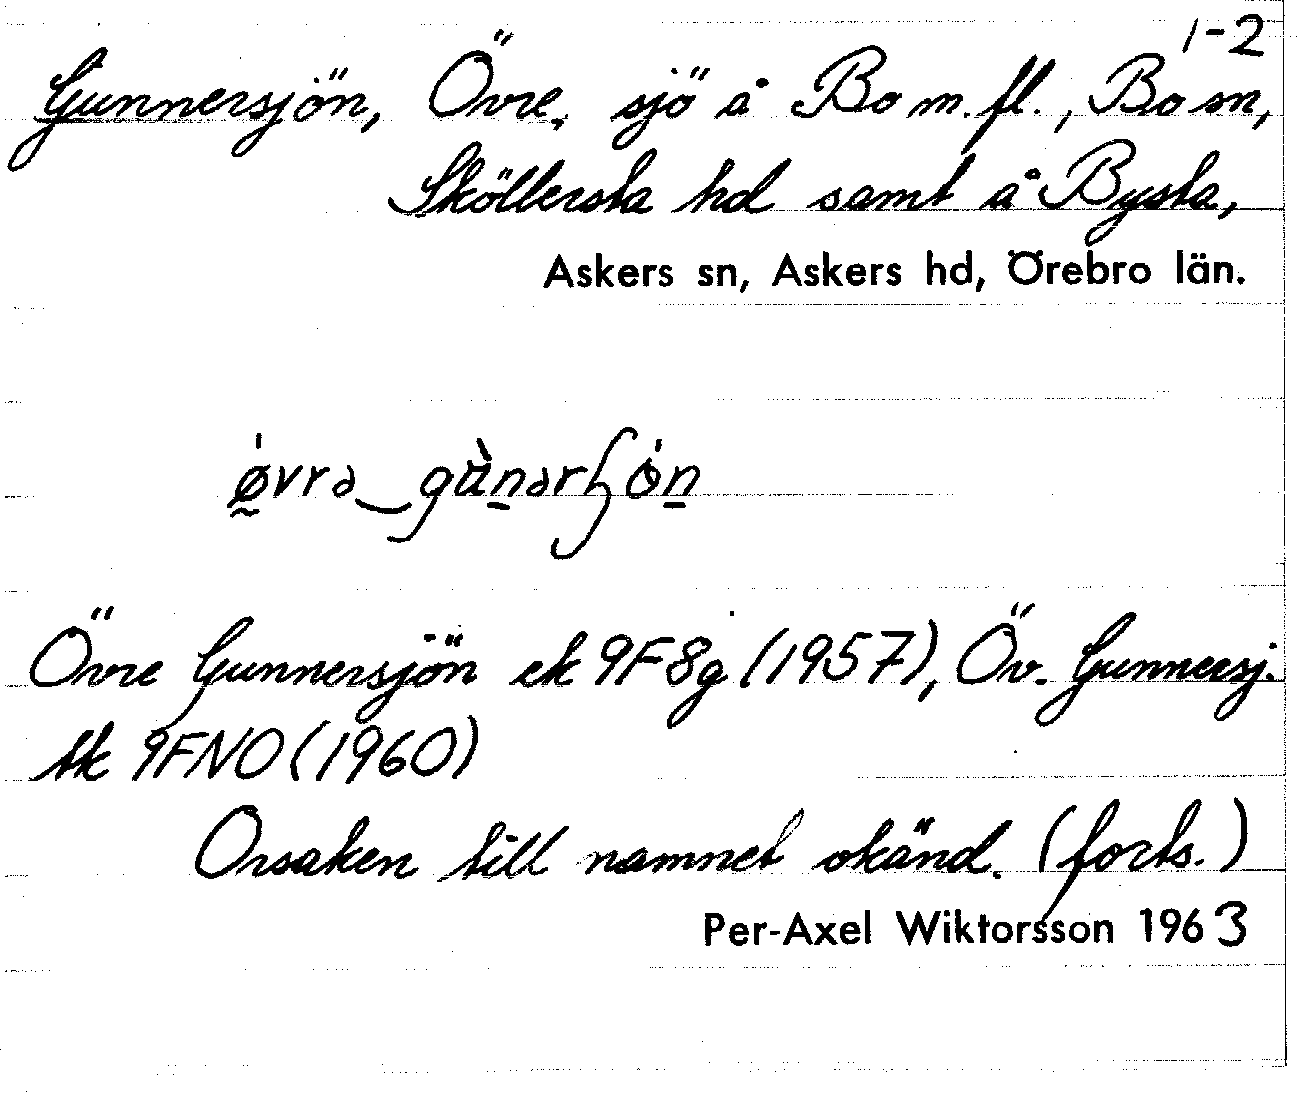 1-2
Gunnersjön, Övre, sjö å Bo m.fl., Bo sn,
Sköllersta hd samt å Bysta,
Askers sn, Askers hd, Örebro län.
Övre Gunnersjön ek 9F8g (1957), Öv. Gunnersj.
tk 9FNO (1960)
Orsaken till namnet okänd. (forts.)
Per-Axel Wiktorsson 1963